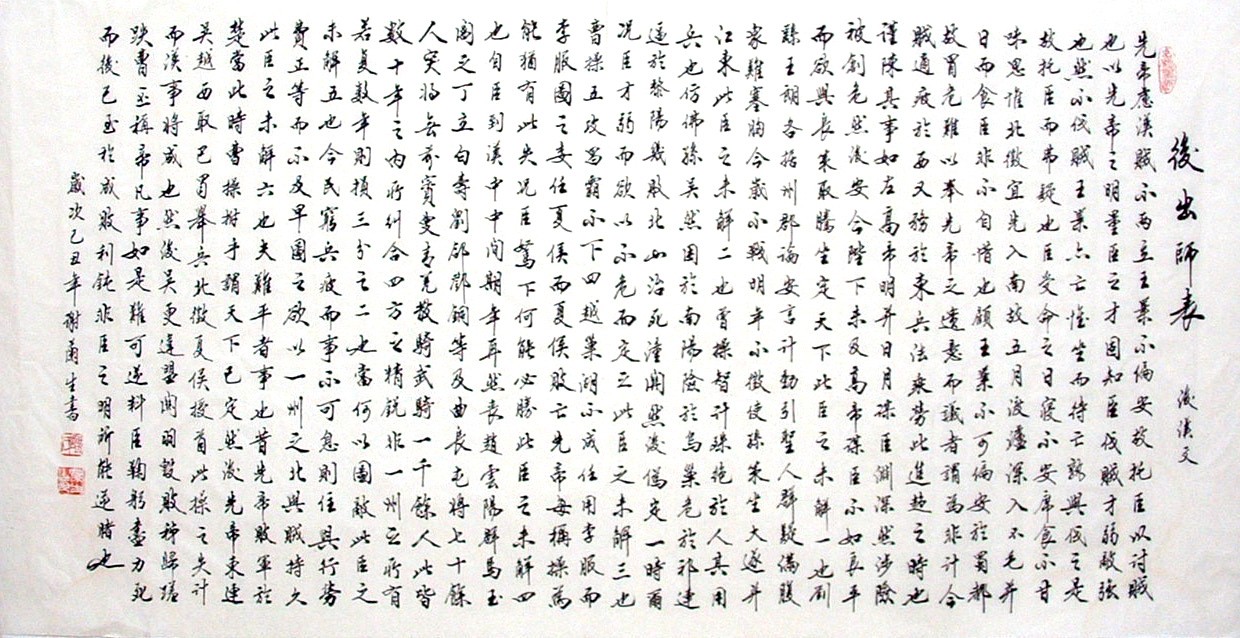 後出師表 後漢文
先帝慮漢賊不兩立王業不偏安故托臣以討賊
也以先帝之明量臣之才固知臣伐賊才弱敵強
也然不伐賊王業亦亡惟坐而待亡孰與伐之是
故托臣而弗疑也臣受命之日寢不安席食不甘
味思惟北徵宜先入南故五月渡瀘深入不毛并
日而食臣非不自惜也顧王業不可偏安於蜀都
故冒危難以奉先帝之遺意而議者謂為非計今
賊適疲於西又務於東兵法乘勞此進趨之時也
謹陳其事如左高帝明并日月謀臣淵深然涉險
被創危然後安今陛下未及高帝謀臣不如良平
而欲與長策取勝坐定天下此臣之未解一也劉
繇王朗各據州郡論安言計動引聖人群疑滿腹
眾難塞胸今歲不戰明年不徵使孫策坐大遂并
江東此臣之未解二也曹操智計殊絕於人其用
兵也仿佛孫吳然困於南陽險於烏巢危於祁連
逼於黎陽幾敗北山殆死潼關然後偽定一時爾
況臣才弱而欲以不危而定之此臣之未解三也
曹操五攻昌霸不下四越巢湖不成任用李服而
李服圖之委任夏侯而夏侯敗亡先帝每稱操為
能猶有此失況臣駑下何能必勝此臣之未解四
也自臣到漢中中間期年耳然喪趙雲陽群馬玉
閻芝丁立白壽劉郃鄧銅等及曲長屯將七十餘
人突將無前賨叟青羌散騎武騎一千餘人此皆
數十年之內所糾合四方之精銳非一州之所有
若复數年則損三分之二也當何以圖敵此臣之
未解五也今民窮兵疲而事不可息則住與行勞
費正等而不及早圖之欲以一州之地與賊持久
此臣之未解六也夫難平者事也昔先帝敗軍於
楚當此時曹操拊手謂天下已定然後先帝東連
吳越西取巴蜀舉兵北徵夏侯授首此操之失計
而漢事將成也然後吳更違盟關羽毀敗秭歸蹉
跌曹丕稱帝凡事如是難可逆料臣鞠躬盡力死
而後已至於成敗利鈍非臣之明所能逆睹也
歲次己丑年 謝生書